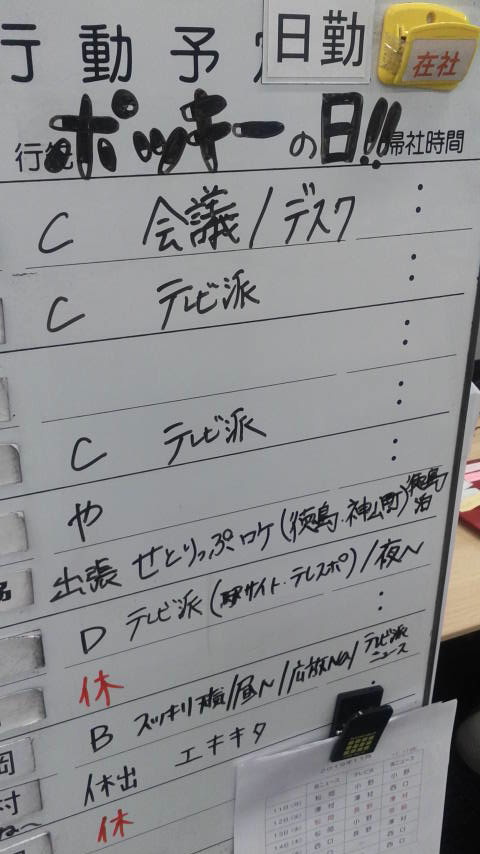 行動予定
日勤
在社
ポッキーの日!!
帰社時間
C 会議/デスク
C テレビ派
C テレビ派
や
出張 せとりっぷロケ(徳島・神山町)徳島泊
D テレビ派(駅サイト・テレスポ)/夜N
休
B スッキリ/昼N/広旅NG/テレビ派ニュース
岡
休出 エキキタ
村
休
昼ニュース テレビ派 夜ニュース